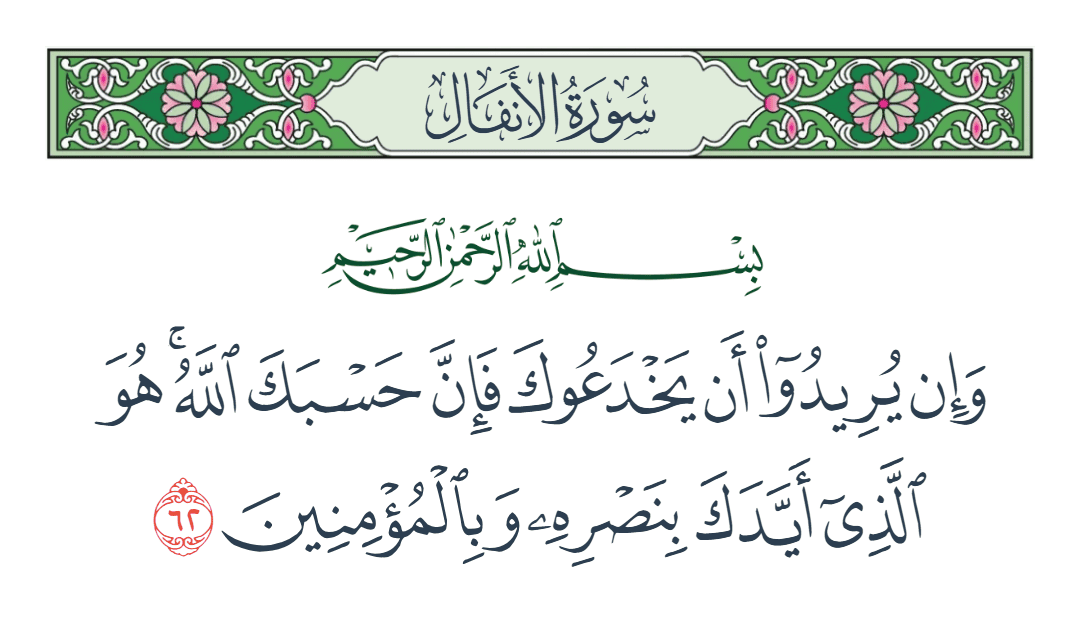 سُورَةُ الأَنفَالِ
بِسْمِ ٱللَّهِ ٱلرَّحْمَٰنِ ٱلرَّحِيمِ
وَإِن يُرِيدُوٓا۟ أَن يَخْدَعُوكَ فَإِنَّ حَسْبَكَ ٱللَّهُ ۚ هُوَ
ٱلَّذِىٓ أَيَّدَكَ بِنَصْرِهِۦ وَبِٱلْمُؤْمِنِينَ ٦٢